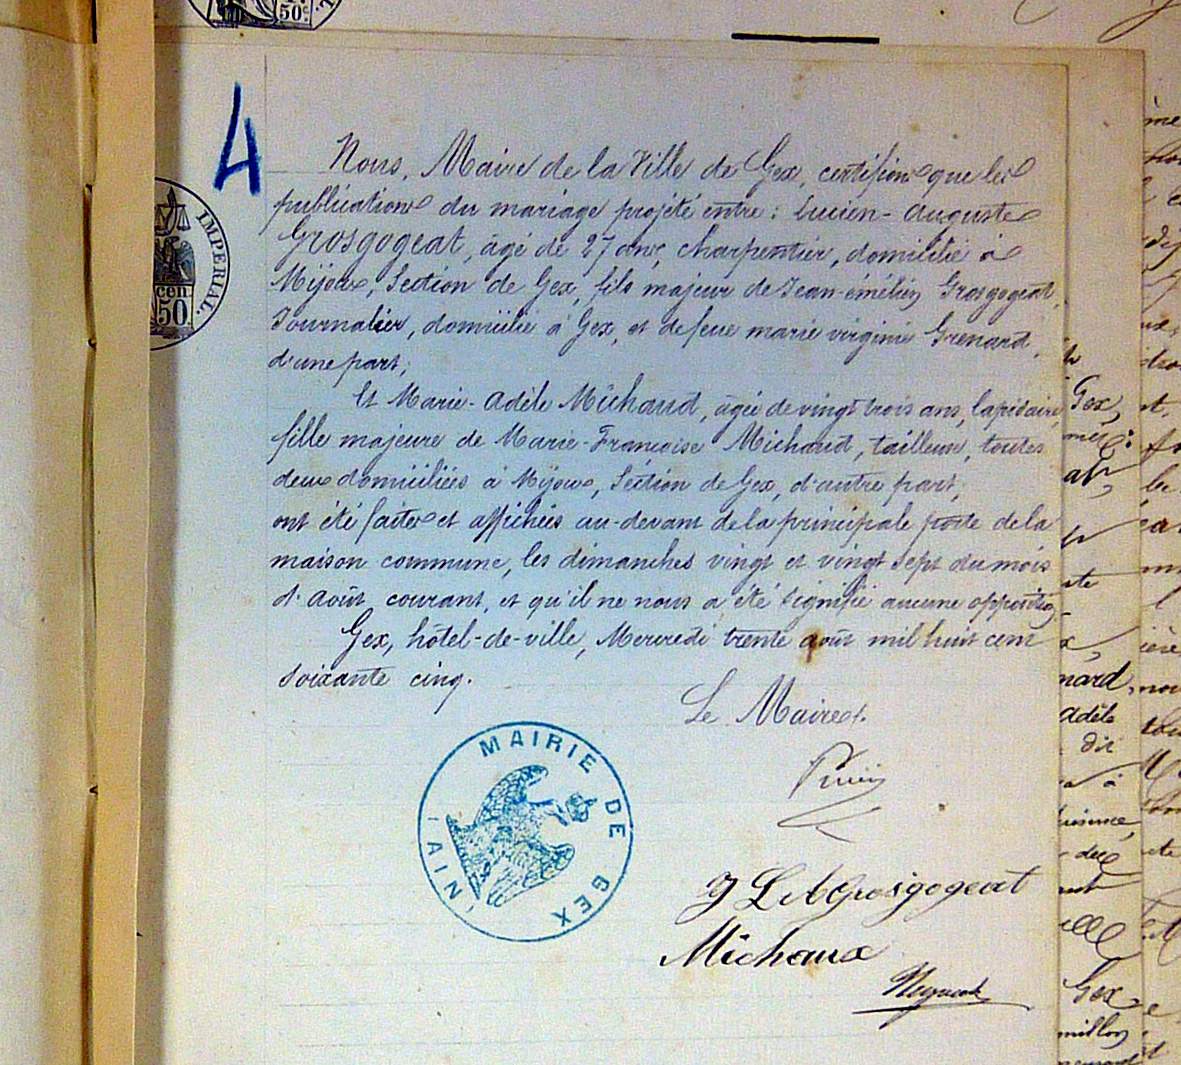 50c
4
IMPERIAL.
cen
50
Nous, Maire de la Ville de Gex, certifions que les
publications du mariage projeté entre : Lucien-Auguste
Grosgogeat, âgé de 27 ans, charpentier, domicilié à
Mijoux, Section de Gex, fils majeur de Jean-émélien Grosgogeat,
Journalier, domicilié à Gex, et de feue marie virginie Grenard,
d'une part;
Et Marie-Adèle Michaud, âgée de vingt trois ans, lapidaire,
fille majeure de Marie-Françoise Michaud, tailleuse, toutes
deux domiciliées à Mijoux, Section de Gex, d'autre part,
ont été faites et affichées au-devant de la principale porte de la
maison commune, les dimanches vingt et vingt sept du mois
d'août courant, et qu'il ne nous a été signifié aucune opposition.
Gex, hôtel-de-ville, Mercredi trente août mil huit cent
soixante cinq.
Le Maire
MAIRIE DE GEX
(AIN)
J L A Grosgogeat
Michaux
Gex,
nard,
Adèle
dit
Gex